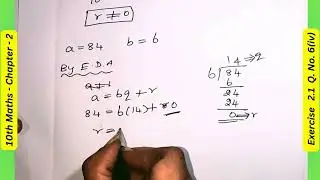 r ≠ 0
a = 84 b = 6
By E.D.A
a = bq + r
84 = 6(14) + 0
r =
14 → q
6 84
6
24
24
0 → r
10th Maths - Chapter - 2
Exercise 2.1 Q. No. 6(iv)